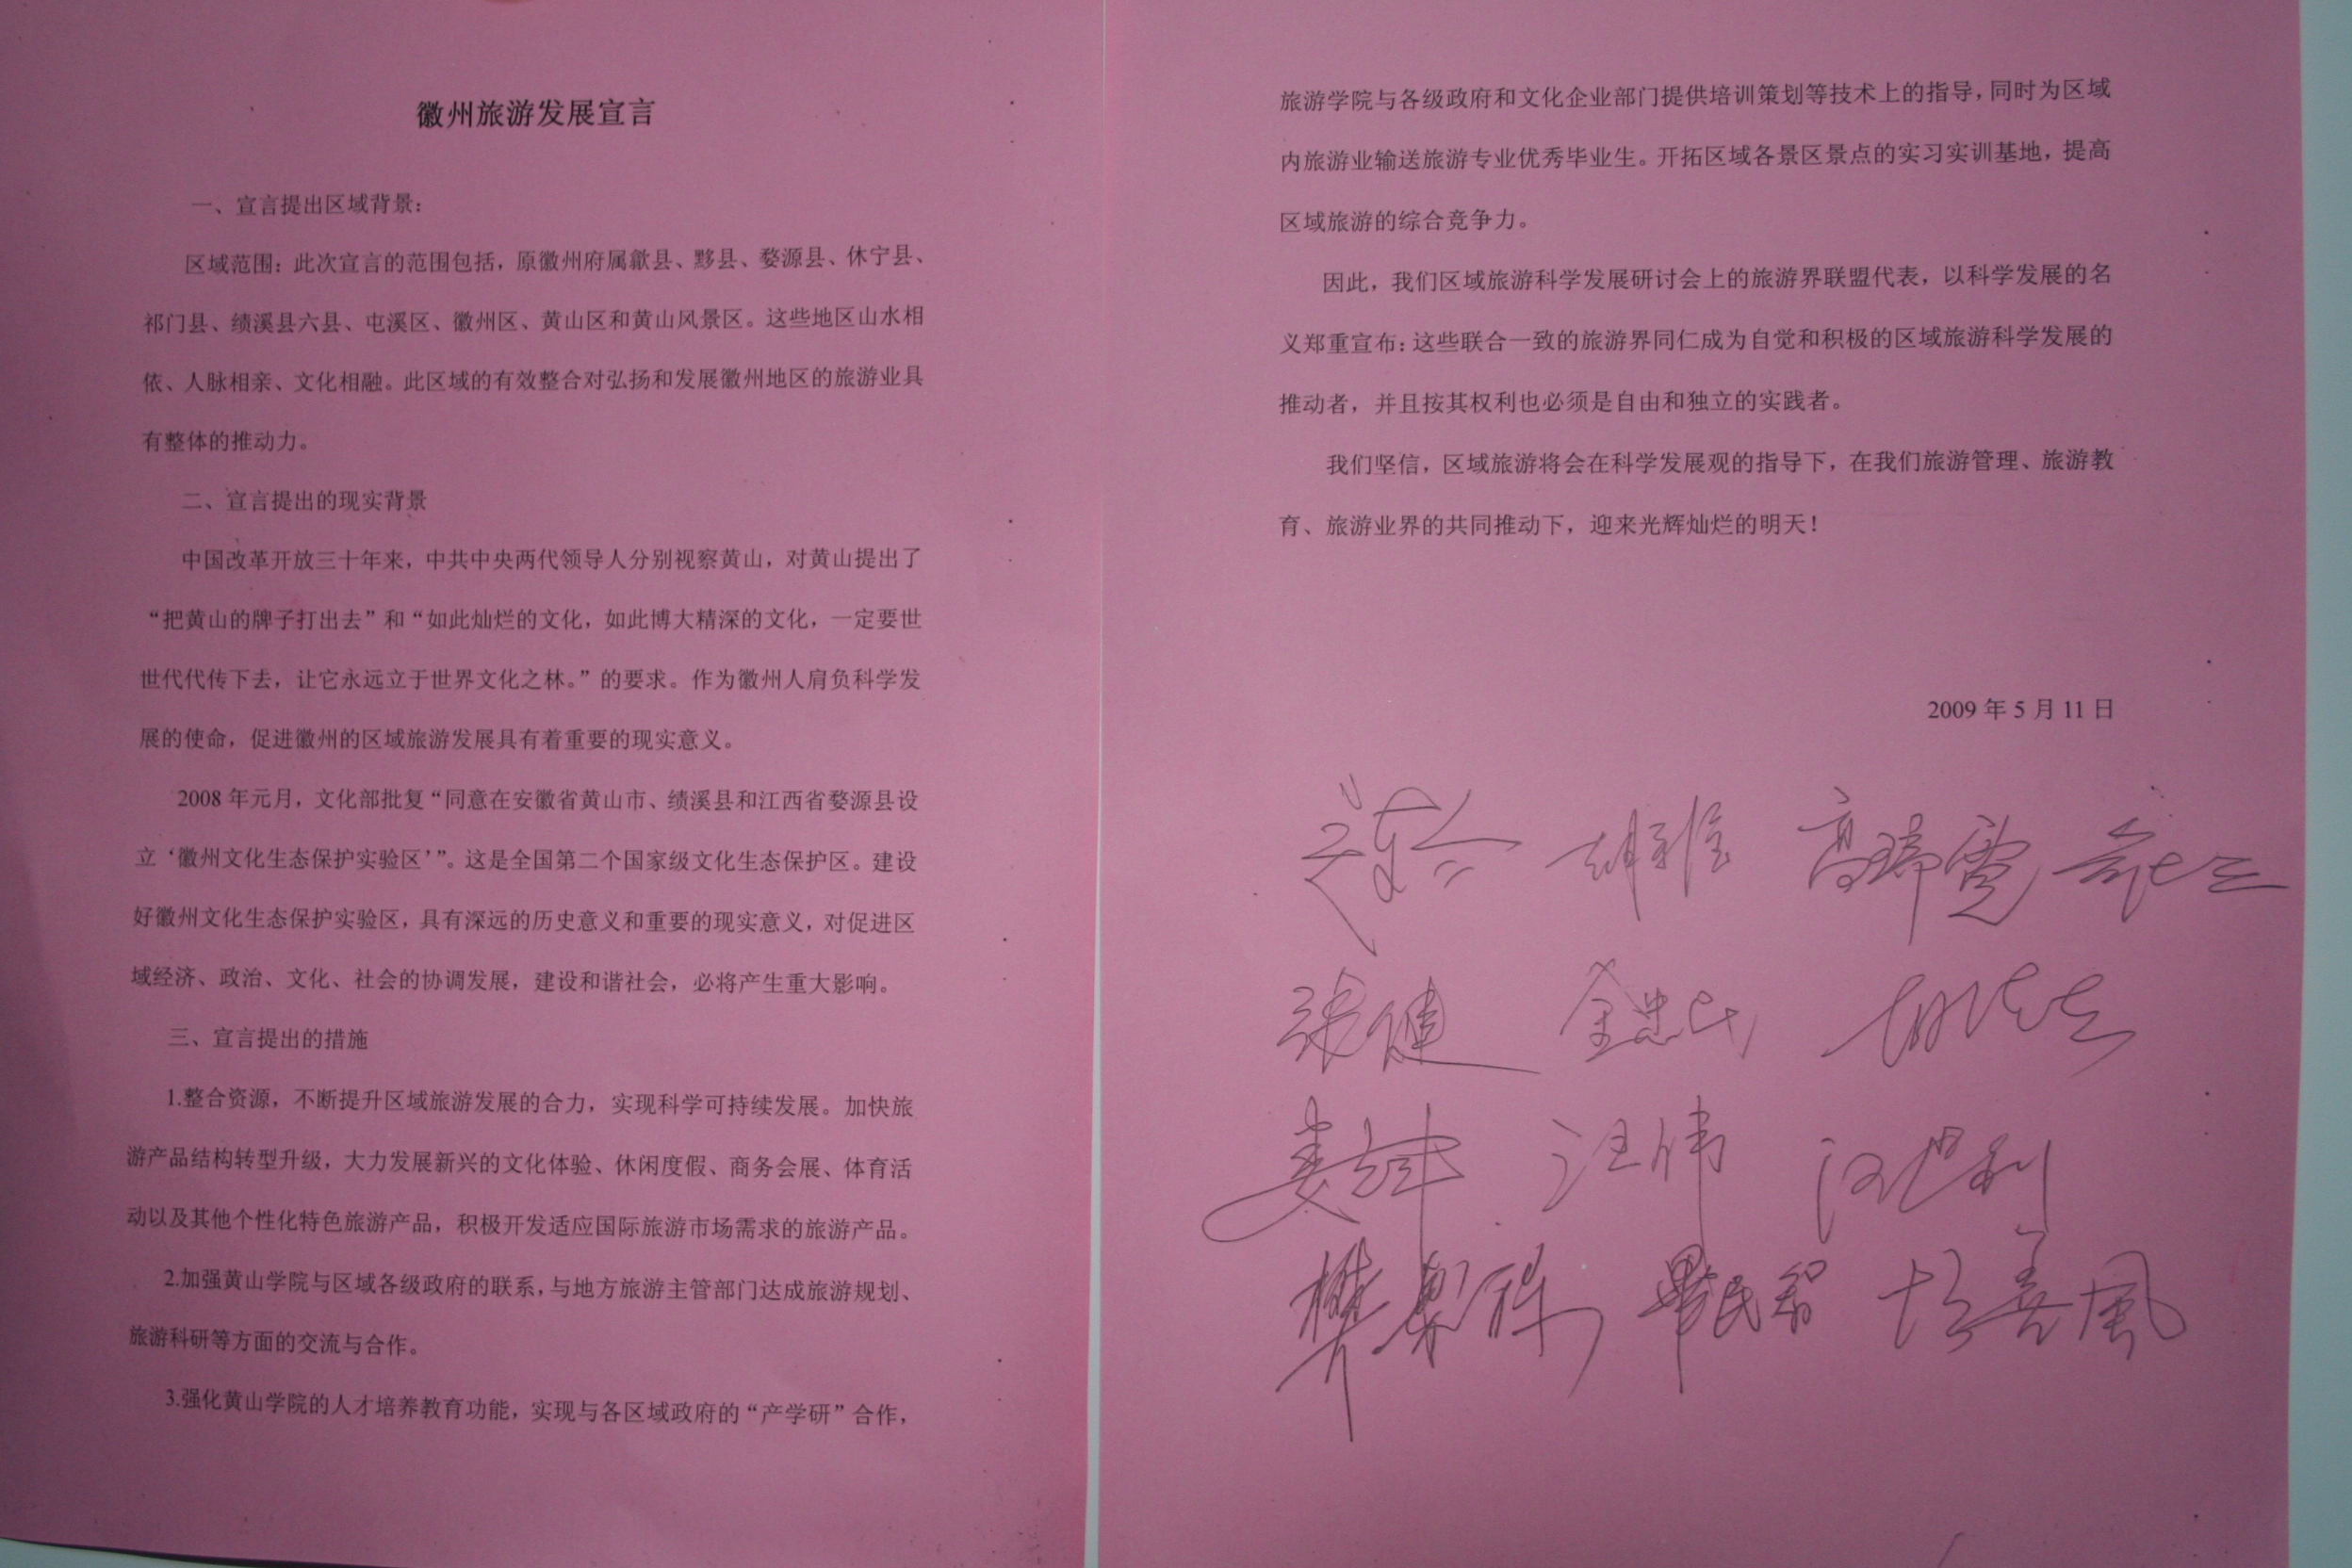 徽州旅游发展宣言
一、宣言提出区域背景：
区域范围：此次宣言的范围包括，原徽州府属歙县、黟县、婺源县、休宁县、
祁门县、绩溪县六县、屯溪区、徽州区、黄山区和黄山风景区。这些地区山水相
依、人脉相亲、文化相融。此区域的有效整合对弘扬和发展徽州地区的旅游业具
有整体的推动力。
二、宣言提出的现实背景
中国改革开放三十年来，中共中央两代领导人分别视察黄山，对黄山提出了
“把黄山的牌子打出去”和“如此灿烂的文化，如此博大精深的文化，一定要世
世代代传下去，让它永远立于世界文化之林。”的要求。作为徽州人肩负科学发
展的使命，促进徽州的区域旅游发展具有着重要的现实意义。
2008 年元月，文化部批复“同意在安徽省黄山市、绩溪县和江西省婺源县设
立‘徽州文化生态保护实验区’”。这是全国第二个国家级文化生态保护区。建设
好徽州文化生态保护实验区，具有深远的历史意义和重要的现实意义，对促进区
域经济、政治、文化、社会的协调发展，建设和谐社会，必将产生重大影响。
三、宣言提出的措施
1.整合资源，不断提升区域旅游发展的合力，实现科学可持续发展。加快旅
游产品结构转型升级，大力发展新兴的文化体验、休闲度假、商务会展、体育活
动以及其他个性化特色旅游产品，积极开发适应国际旅游市场需求的旅游产品。
2.加强黄山学院与区域各级政府的联系，与地方旅游主管部门达成旅游规划、
旅游科研等方面的交流与合作。
3.强化黄山学院的人才培养教育功能，实现与各区域政府的“产学研”合作，
旅游学院与各级政府和文化企业部门提供培训策划等技术上的指导，同时为区域
内旅游业输送旅游专业优秀毕业生。开拓区域各景区景点的实习实训基地，提高
区域旅游的综合竞争力。
因此，我们区域旅游科学发展研讨会上的旅游界联盟代表，以科学发展的名
义郑重宣布：这些联合一致的旅游界同仁成为自觉和积极的区域旅游科学发展的
推动者，并且按其权利也必须是自由和独立的实践者。
我们坚信，区域旅游将会在科学发展观的指导下，在我们旅游管理、旅游教
育、旅游业界的共同推动下，迎来光辉灿烂的明天！
2009 年 5 月 11 日
高瑞霞
张健 金忠民
汪伟